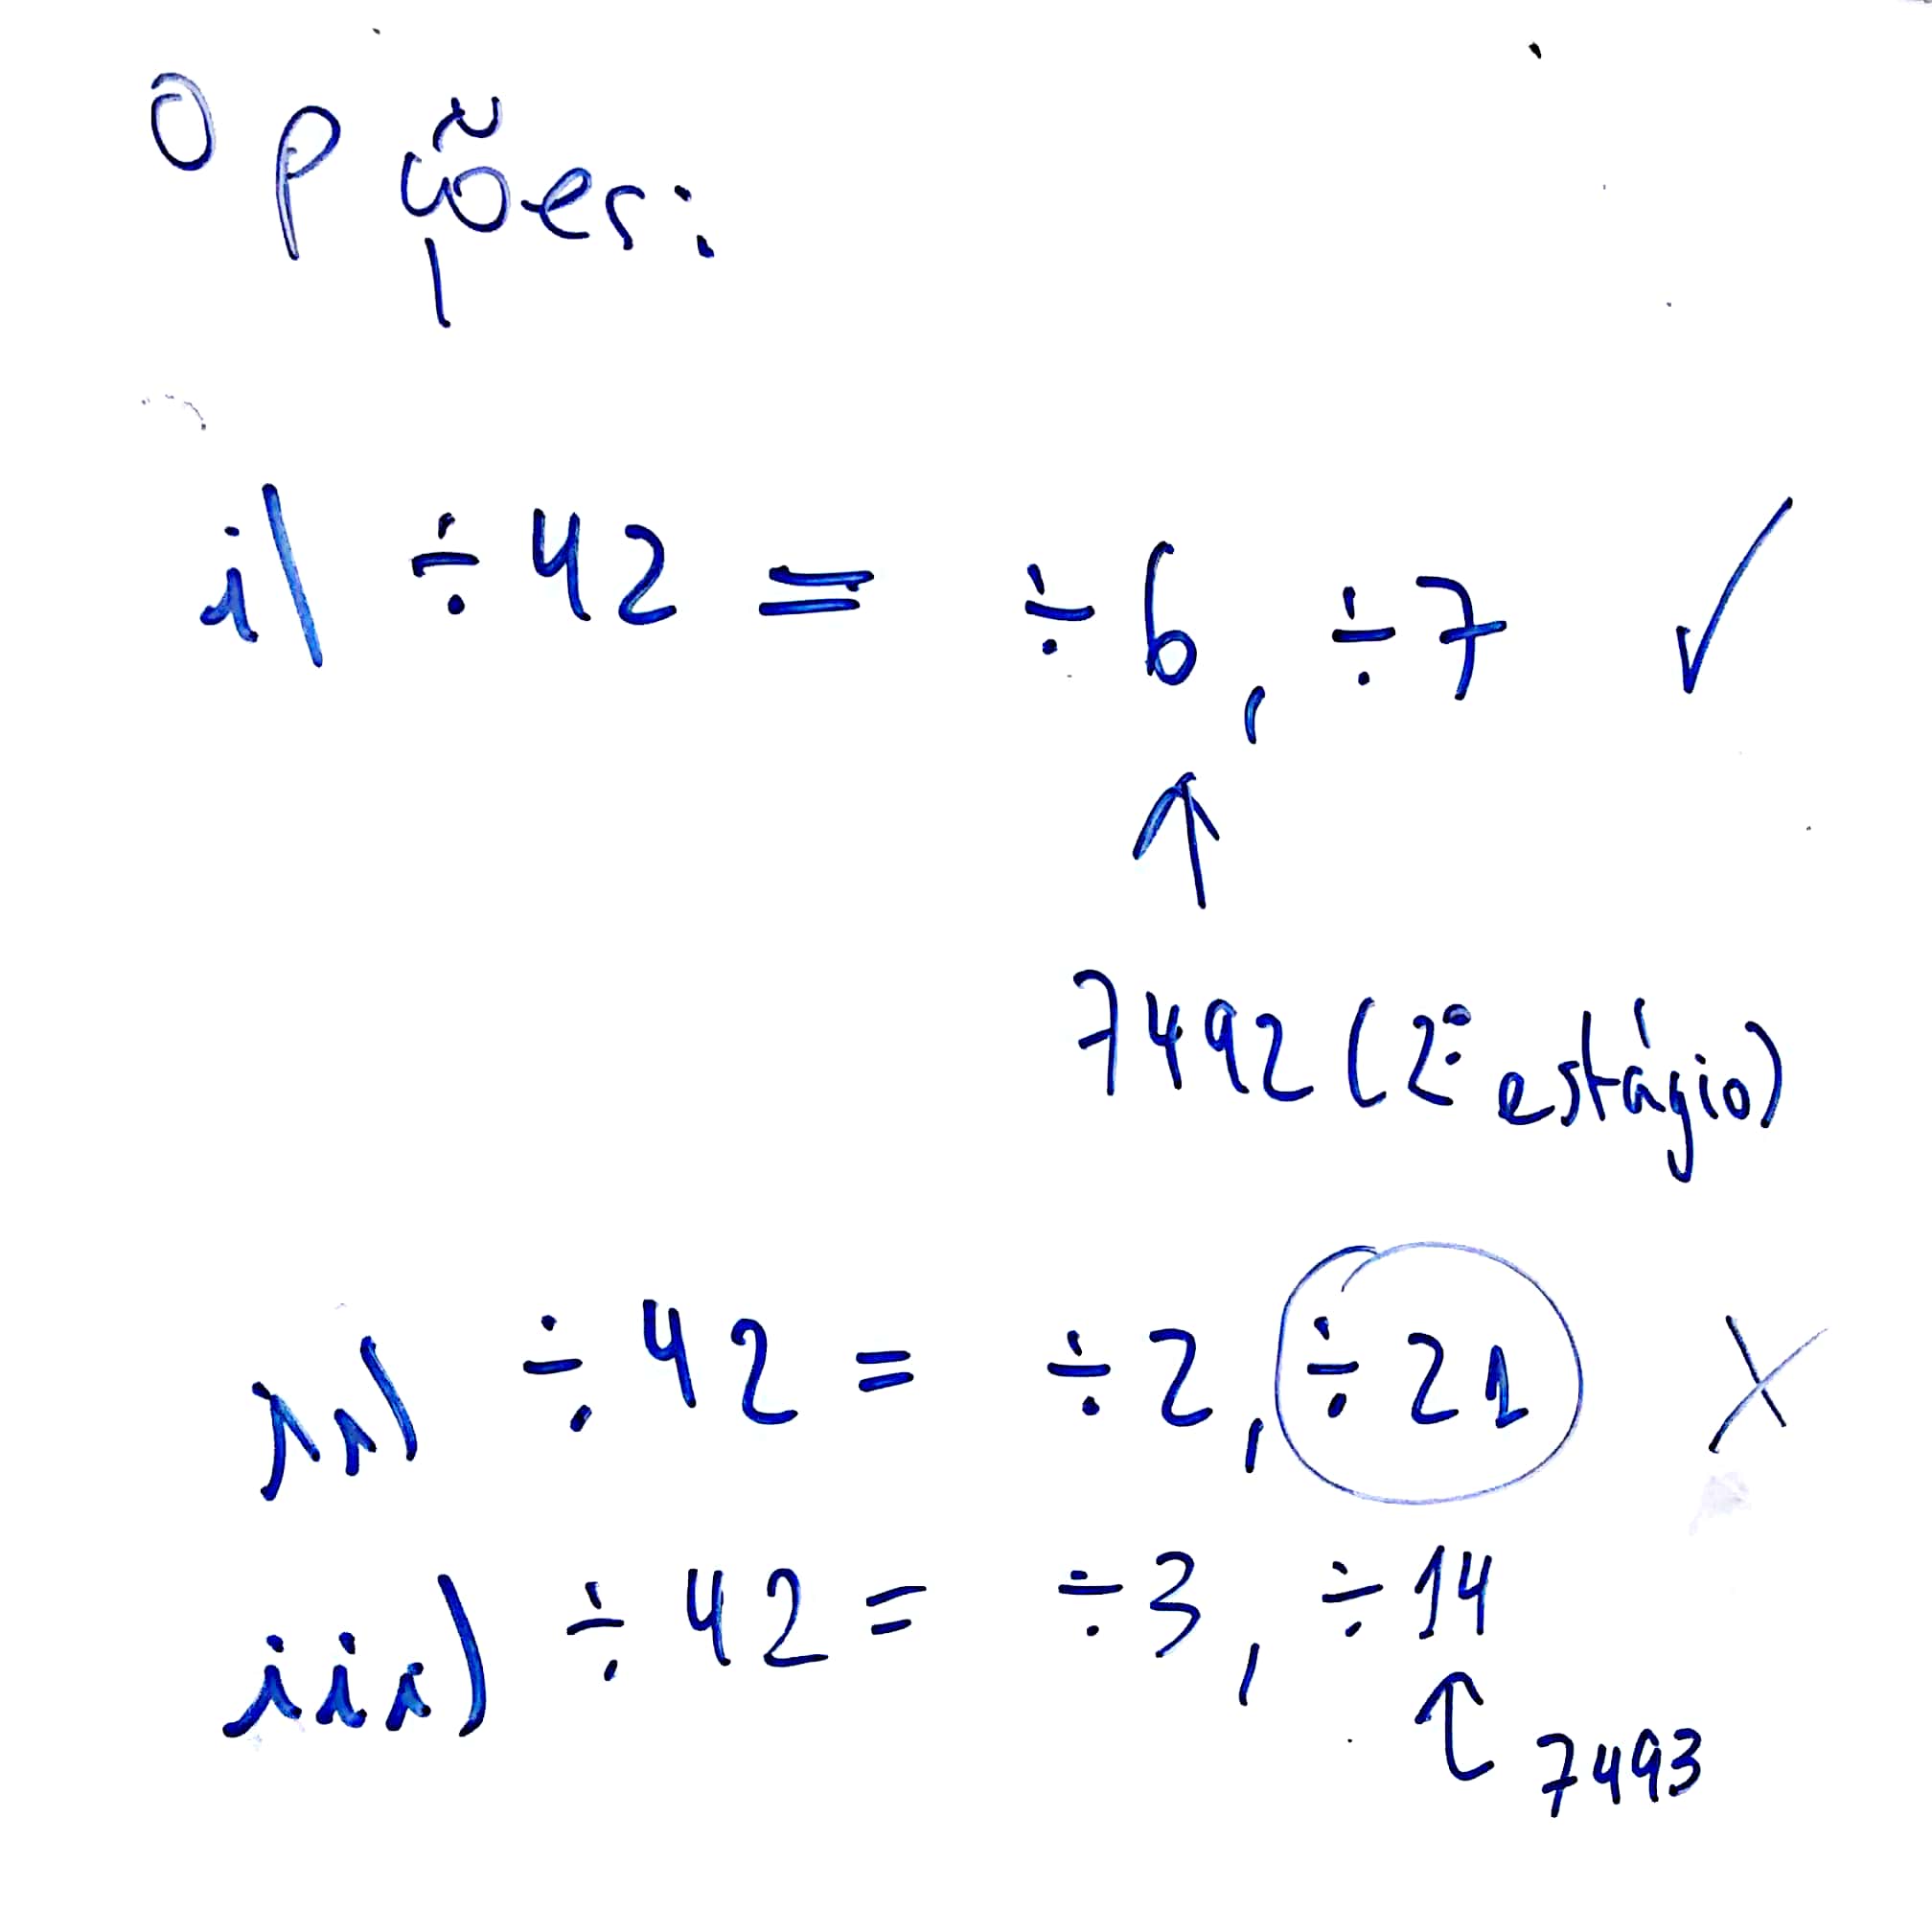 Opções:
i) ÷ 42 = ÷ 6, ÷ 7 ✓
↑
7492 (2º estágio)
ii) ÷ 42 = ÷ 2, ÷ 21 X
iii) ÷ 42 = ÷ 3, ÷ 14
↑ 7493